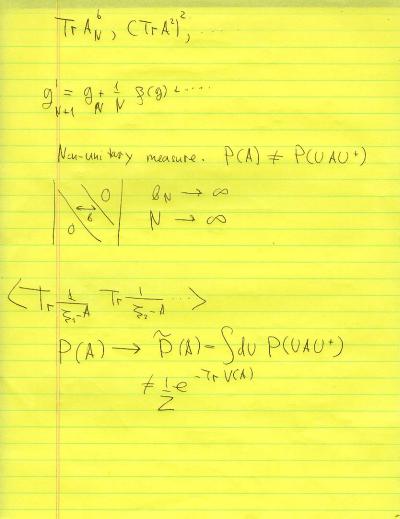 Tr A_N^6, (Tr A²)², ....
g'_{N+1} = g_N + 1/N β(g) + ....
Non-unitary measure. P(A) ≠ P(UAU⁺)
0 ↔ b 0 b_N → ∞
N → ∞
< Tr 1/(ξ₁-A) Tr 1/(ξ₂-A) ... >
P(A) → P̃(A) = ∫dU P(UAU⁺)
≠ 1/Z e^{-Tr V(A)}